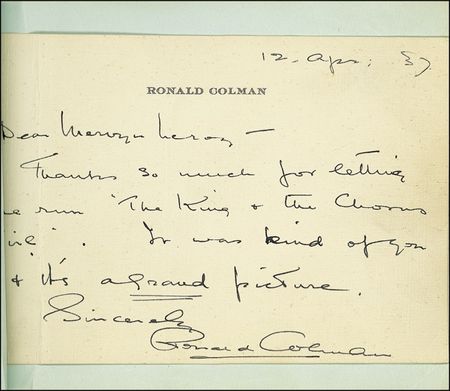 12. Apr: 37
RONALD COLMAN
Dear Mervyn Leroy –
Thanks so much for letting
e run "The King & the Chorus
irl". It was kind of you
& it's a grand picture.
Sincerely
Ronald Colman